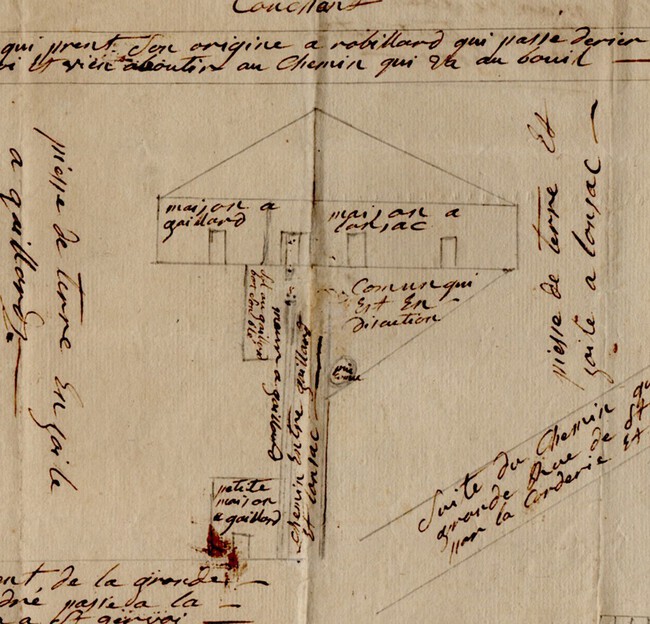 Couchant
qui prent Son origine a robillard qui passe derier
et vien aboutir au Chemin qui va au bouil
piesse de terre En gaile
a gaillard
maison a
gaillard
maison a
lonjac
piesse de terre Et
gaile a lonjac
Comun qui
Est En
discution
meure a gaillard
Chemin Entre gaillard
Et lonjac
petite
maison
a gaillard
Suite du Chemin qu
grande Rue de St
par la Corderie Et
ent de la grande
dré passe a la
a St gervoi